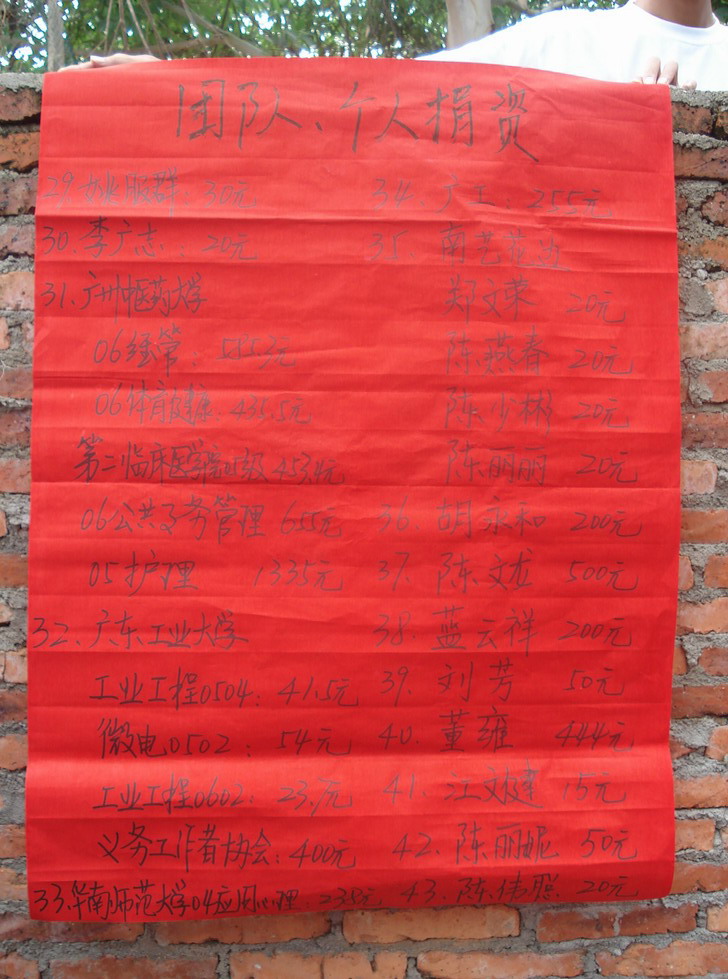 团队、个人捐资
29.姚服群：30元
30.李广志：20元
31.广州中医药大学
06经管：585.3元
06体育健康：435.5元
第二临床医学院 级 453.4元
06公共事务管理 655元
05护理 1335元
32.广东工业大学
工业工程0504：41.5元
微电0502：54元
工业工程0602：23.7元
义务工作者协会：400元
33.华南师范大学04应用心理：238元
34.广工：255元
35.南艺花边
郑文荣 20元
陈燕春 20元
陈少彬 20元
陈丽丽 20元
36.胡永和 200元
37.陈文龙 500元
38.蓝云祥 200元
39.刘芳 50元
40.董雍 444元
41.江文健 15元
42.陈丽妮 50元
43.陈伟聪 20元